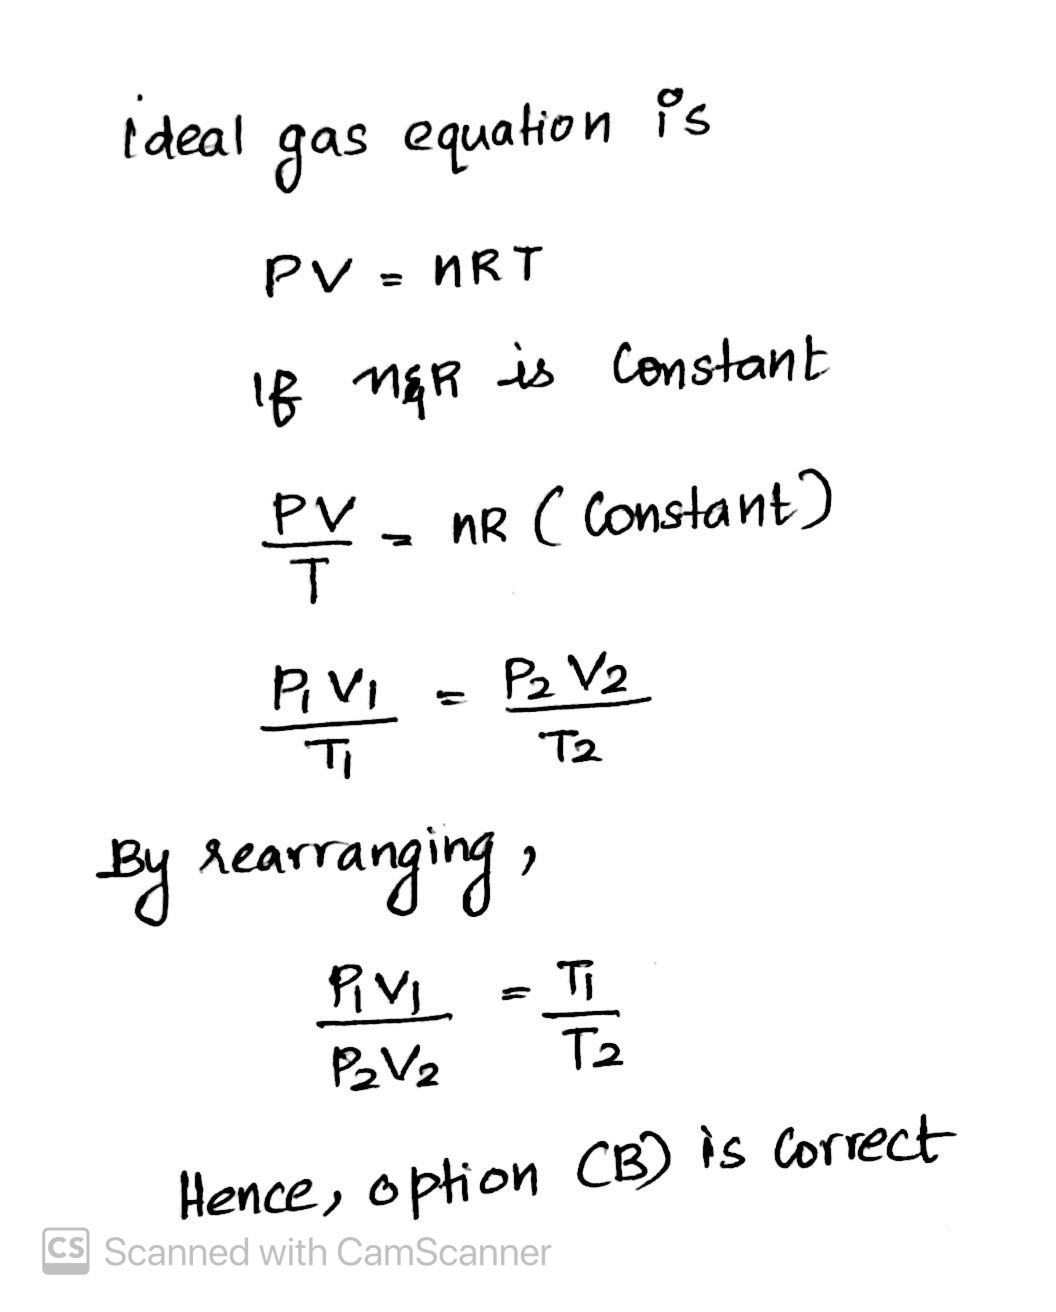 ideal gas equation is
PV = nRT
If n&R is Constant
PV/T = nR (Constant)
P1 V1/T1 = P2 V2/T2
By rearranging,
P1 V1/P2 V2 = T1/T2
Hence, option (B) is Correct
CS Scanned with CamScanner